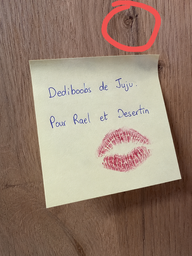 Dediboobs de Juju.
Pour Rael et Desertin